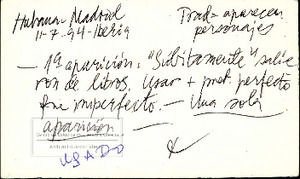 Madrid
11-7-94-Iberia
Trad = aparecen
personajes
— 1ª aparición: "Súbitamente" salie
ron de libros. Usar + pret perfecto
que imperfecto. — Una sola
aparición —
USADO